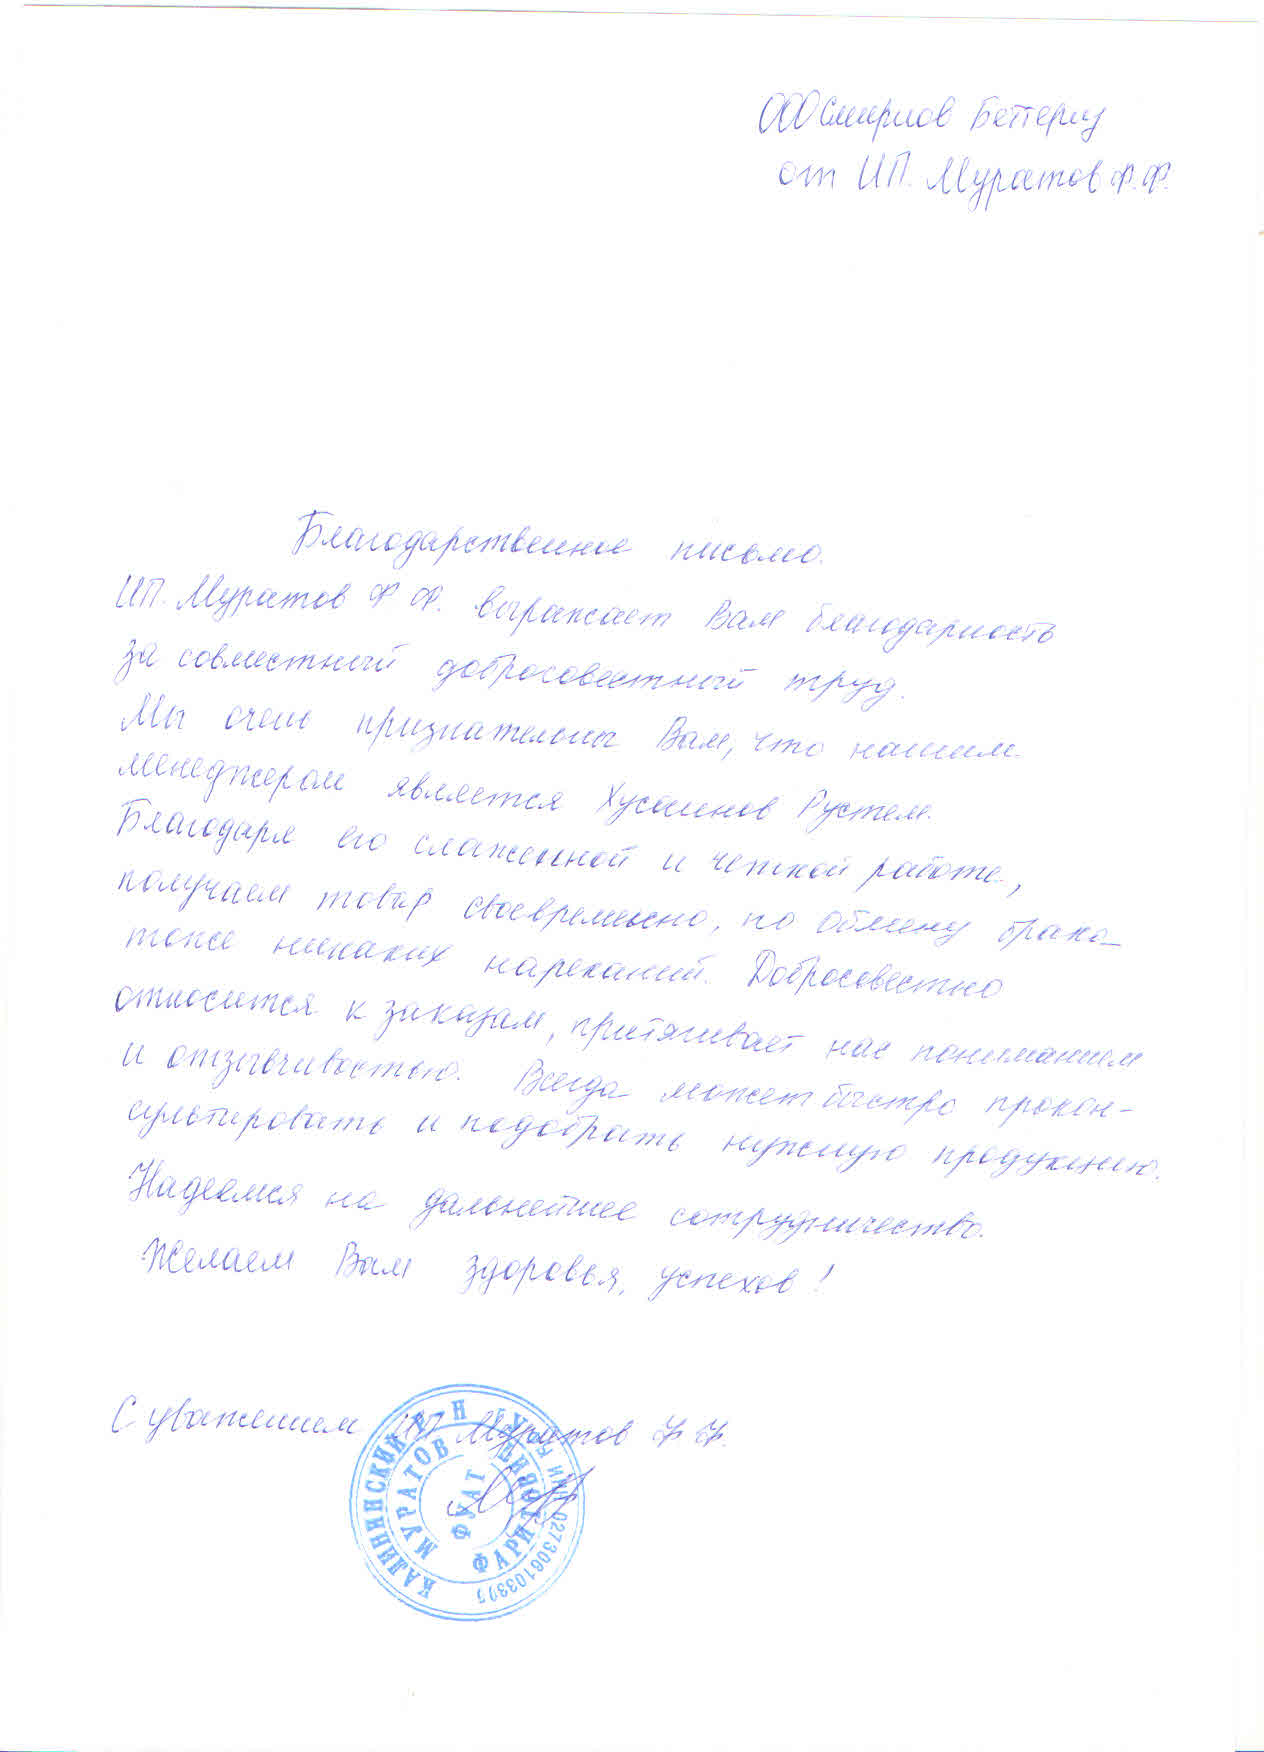 ООО Смирнов Беттериз
от ИП. Муратов Ф.Ф.
Благодарственное письмо.
ИП. Муратов Ф Ф. выражает Вам благодарность
за совместный добросовестный труд.
Мы очень признательны Вам, что нашим
менеджером является Хусаинов Рустем.
Благодаря его слаженной и четкой работе,
получаем товар своевременно, по обмену брака
тоже никаких нареканий. Добросовестно
относится к заказам, притягивает нас пониманием
и отзывчивостью. Всегда может быстро прокон-
сультировать и подобрать нужную продукцию.
Надеемся на дальнейшее сотрудничество.
Желаем Вам здоровья, успехов!
С уважением ИП Муратов Ф Ф.
КАЛИНИНСКИЙ Р-Н Г. УФЫ ИНН 027306103395
МУРАТОВ
ФУАТ
ФАРИТОВИЧ